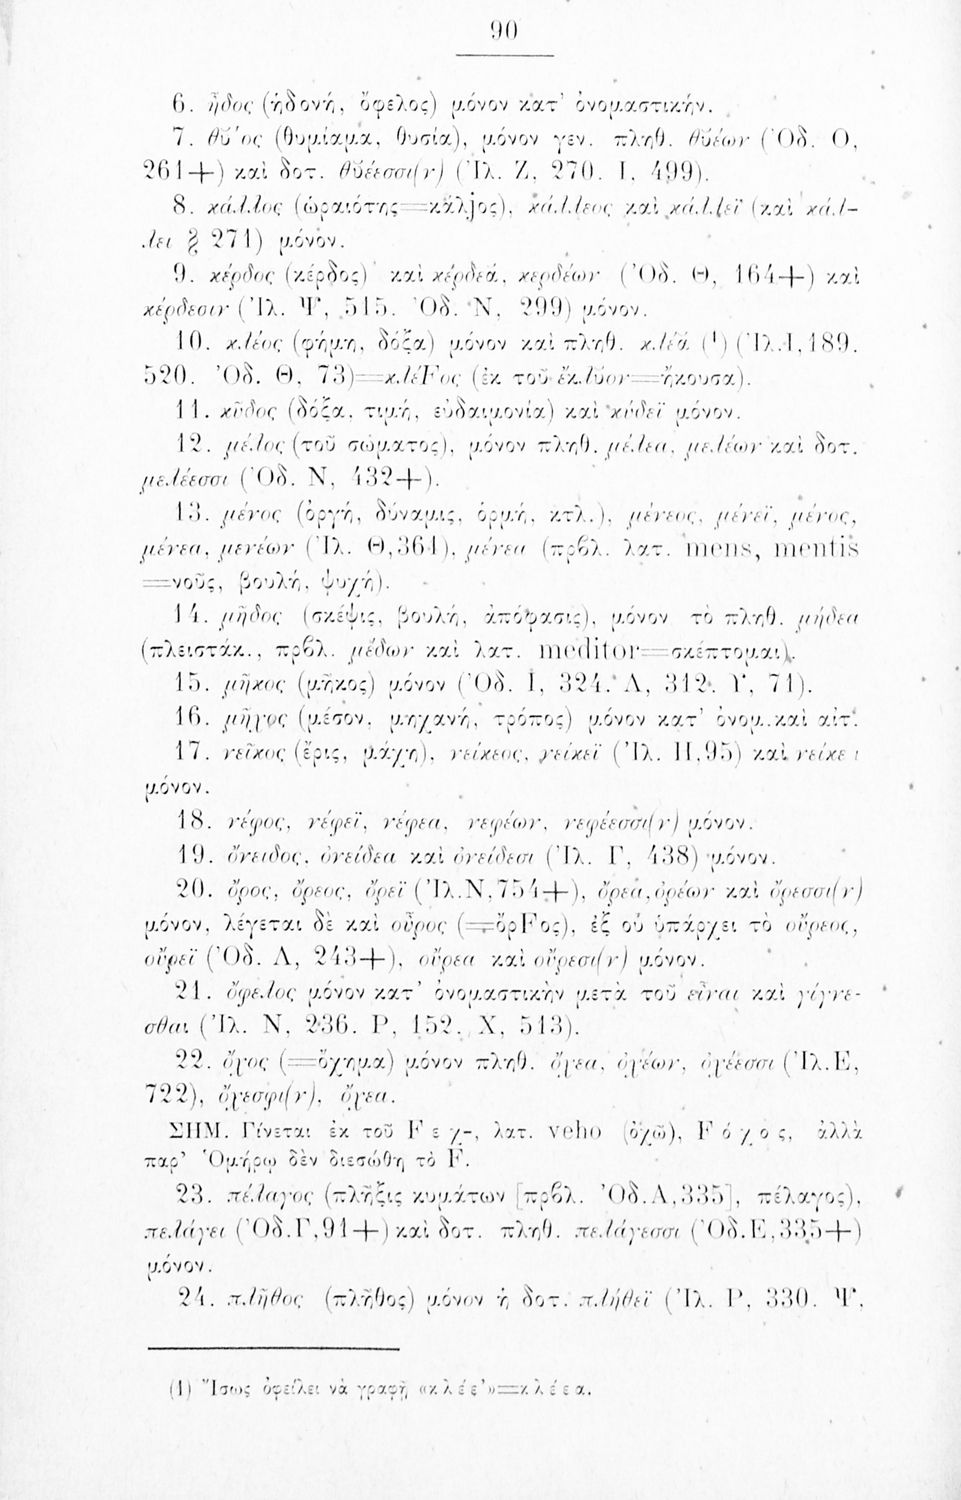 90
6. ἦδος (ἡδονή, ὄφελος) μόνον κατ' ὀνομαστικήν.
7. θύος (θυμίαμα, θυσία), μόνον γεν. πληθ. θυέων (Ὀδ. Ο,
261+) καὶ δοτ. θυέεσσι(ν) (Ἰλ. Ζ, 270. Ι, 499).
8. κάλλος (ὡραιότης=κάλjος), κάλλεος καὶ κάλλεϊ (καὶ κάλ-
λει § 271) μόνον.
9. κέρδος (κέρδος) καὶ κέρδεα, κερδέων (Ὀδ. Θ, 164+) καὶ
κέρδεσιν (Ἰλ. Ψ, 515. Ὀδ. Ν, 299) μόνον.
10. κλέος (φήμη, δόξα) μόνον καὶ πληθ. κλέᾰ (¹) (Ἰλ.Ι,189.
520. Ὀδ. Θ, 73)=κλέFος (ἐκ τοῦ ἔκλυον=ἤκουσα).
11. κῦδος (δόξα, τιμή, εὐδαιμονία) καὶ κύδεϊ μόνον.
12. μέλος (τοῦ σώματος), μόνον πληθ. μέλεα, μελέων καὶ δοτ.
μελέεσσι (Ὀδ. Ν, 432+).
13. μένος (ὀργή, δύναμις, ὁρμή, κτλ.), μένεος, μένεϊ, μένος,
μένεα, μενέων (Ἰλ. Θ,361), μένεα (πρβλ. λατ. mens, mentis
=νοῦς, βουλή, ψυχή).
14. μῆδος (σκέψις, βουλή, ἀπόφασις), μόνον τὸ πληθ. μήδεα
(πλειστάκ., πρβλ. μέδων καὶ λατ. meditor=σκέπτομαι).
15. μῆκος (μῆκος) μόνον (Ὀδ. Ι, 324. Λ, 312. Υ, 71).
16. μῆχος (μέσον, μηχανή, τρόπος) μόνον κατ' ὀνομ. καὶ αἰτ.
17. νεῖκος (ἔρις, μάχη), νείκεος, νείκεϊ (Ἰλ. Η,95) καὶ νείκει
μόνον.
18. νέφος, νέφεϊ, νέφεα, νεφέων, νεφέεσσι(ν) μόνον.
19. ὄνειδος, ὀνείδεα καὶ ὀνείδεσι (Ἰλ. Γ, 438) μόνον.
20. ὄρος, ὄρεος, ὄρεϊ (Ἰλ.Ν,754+), ὄρεα, ὀρέων καὶ ὄρεσσι(ν)
μόνον, λέγεται δὲ καὶ οὖρος (=ὄρFος), ἐξ οὗ ὑπάρχει τὸ οὔρεος,
οὔρεϊ (Ὀδ. Λ, 243+), οὔρεα καὶ οὔρεσι(ν) μόνον.
21. ὄφελος μόνον κατ' ὀνομαστικὴν μετὰ τοῦ εἶναι καὶ γίγνε-
σθαι (Ἰλ. Ν, 236. Ρ, 152. Χ, 513).
22. ὄχος (=ὄχημα) μόνον πληθ. ὄχεα, ὀχέων, ὀχέεσσι (Ἰλ.Ε,
722), ὄχεσφι(ν), ὄχεα.
ΣΗΜ. Γίνεται ἐκ τοῦ Fεχ-, λατ. veho (ὀχῶ), Fόχος, ἀλλὰ
παρ' Ὁμήρῳ δὲν διεσώθη τὸ F.
23. πέλαγος (πλῆξις κυμάτων [πρβλ. Ὀδ.Λ,335], πέλαγος),
πελάγει (Ὀδ.Γ,91+) καὶ δοτ. πληθ. πελάγεσσι (Ὀδ.Ε,335+)
μόνον.
24. πλῆθος (πλῆθος) μόνον ἡ δοτ. πλήθεϊ (Ἰλ. Ρ, 330. Ψ,
(1) Ἴσως ὀφείλει νὰ γραφῇ «κλέε'»=κλέεα.